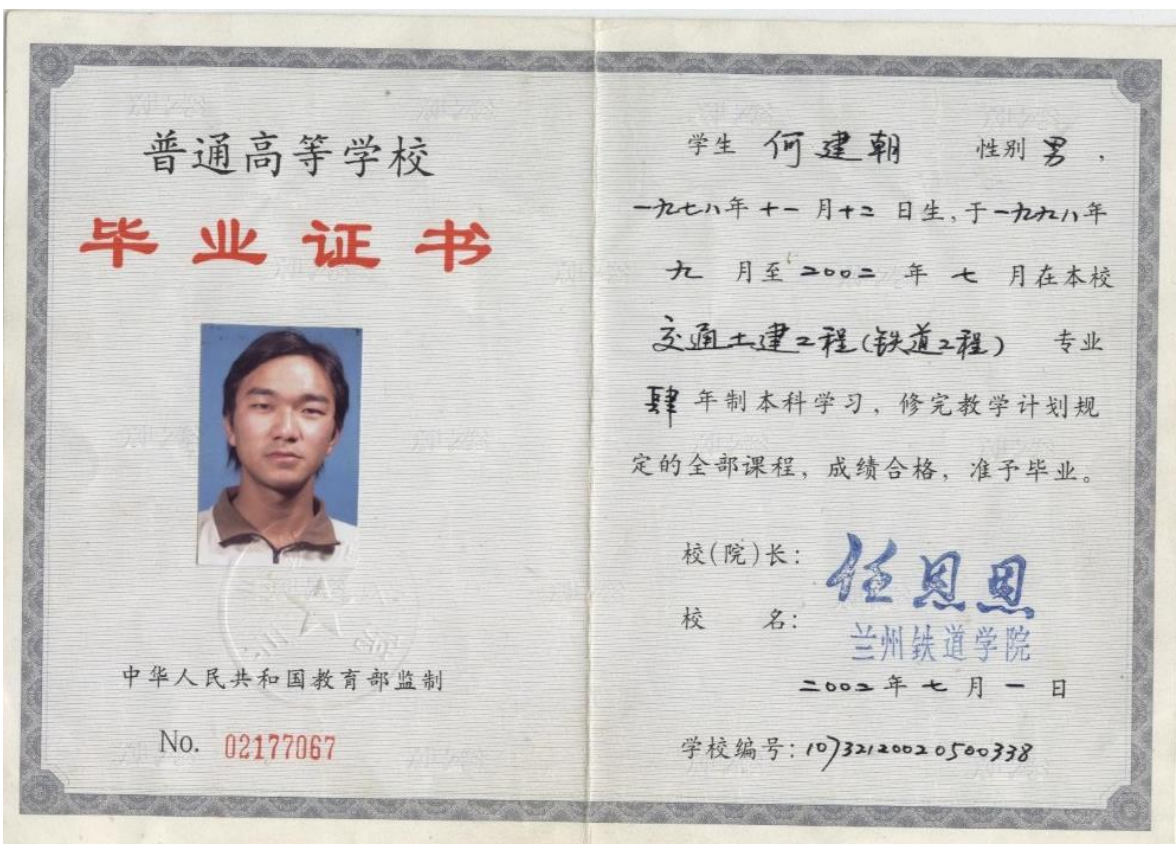 普通高等学校
毕业证书
中华人民共和国教育部监制
No. 02177067
学生 何建朝 性别 男，
一九七八年 十一 月 十二 日生，于一九九八年
九 月至 二〇〇二 年 七 月在本校
交通土建工程(铁道工程) 专业
肆 年制本科学习，修完教学计划规
定的全部课程，成绩合格，准予毕业。
校(院)长： 任恩恩
校 名： 兰州铁道学院
二〇〇二 年 七 月 一 日
学校编号：10732120020500338